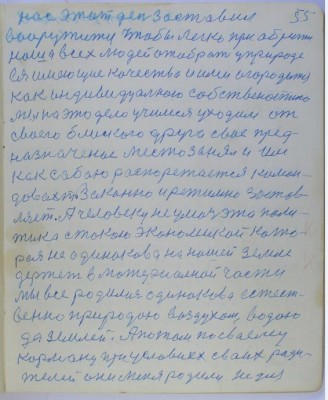 нас этот деп заставил 55
вооружити чтобы легко приобрити
наша всех людей отобрат у природе
ся имеющие качества и ими огородится
как индивидуалною собственостию
мы на это дело учимся уходим от
своего близкого друга свое пред-
назначеное место занял и им
как сабою распоряжается коман-
довает. Законно и режимно застав-
ляет. А человеку не умолу эта поли-
тика с токою экономикой кото-
рая не одинакова на нашей земле
держет в материалной части
мы все родилися одинакова естест-
венно природою воздухом, водою
да землей. А потом по своему
карману при условиях своих роди-
телей они меня родили не для